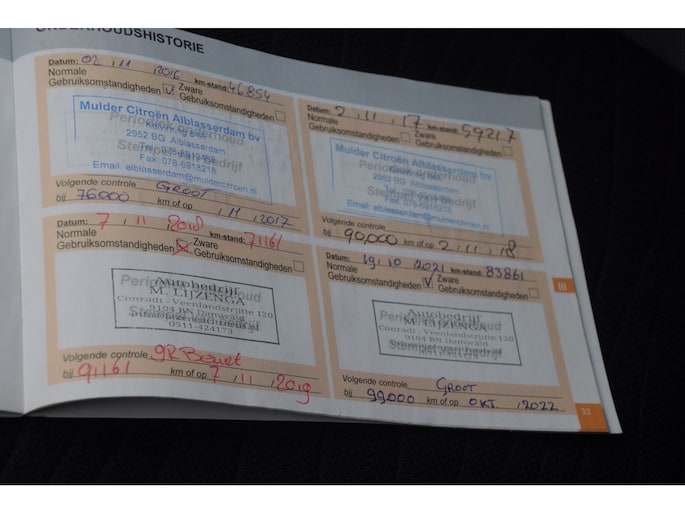 ONDERHOUDSHISTORIE
Datum: 02 , 11 , 2016 km-stand: 46854
Normale Gebruiksomstandigheden Zware Gebruiksomstandigheden
Mulder Citroën Alblasserdam bv
Periodiek onderhoud
2952 BG Alblasserdam
Stempel van bedrijf
Fax: 078-6918218
Email: alblasserdam@muldercitroen.nl
Volgende controle GROOT
bij 76000 km of op / 11 / 2017
Datum: 2 , 11 , 17 km-stand: 59217
Normale Gebruiksomstandigheden Zware Gebruiksomstandigheden
Mulder Citroën Alblasserdam bv
2952 BG Alblasserdam
Fax: 078-6918218
Email: alblasserdam@muldercitroen.nl
Volgende controle
bij 90,000 km of op 2 , 11 , 18
Datum: 7 , 11 , 2018 km-stand: 71161
Normale Gebruiksomstandigheden Zware Gebruiksomstandigheden
Autobedrijf
M. LIJZENGA
Conradi - Veenlandstrjitte 120
9104 BN Damwâld
0511-424173
Volgende controle
bij 91161 km of op 7 / 11 / 2019
Datum: 19 , 10 2021 km-stand: 83861
Normale Gebruiksomstandigheden Zware Gebruiksomstandigheden
Autobedrijf
M. LIJZENGA
Conradi - Veenlandstrjitte 120
9104 BN Damwâld
Volgende controle GROOT
bij 99000 km of op OKT. , 2022
III
33